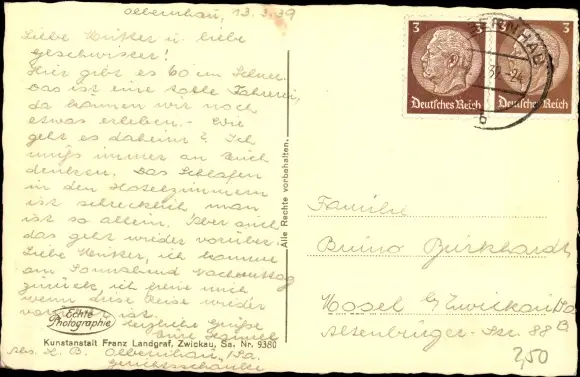 Olbernhau, 13.3.39
Liebe Mutter u. liebe
Geschwister!
Hier gibt es 60 cm Schnee.
Das ist eine tolle Fahrerei,
da können wir noch
etwas erleben. - Wie
geht es daheim? Ich
muß immer an Euch
denken. Das Schlafen
in den Hotelzimmern
ist schrecklich, man
ist so allein. Aber auch
das geht wieder vorüber.
Liebe Mutter, ich komme
am Sonnabend Nachmittag
zurück, ich freue mich
wenn diese Reise wieder
vorüber ist.
Herzliche Grüße
Eure
Abs. H. B. Olbernhau, Sa.
Echte
Photographie
Kunstanstalt Franz Landgraf, Zwickau, Sa. Nr. 9380
Alle Rechte vorbehalten.
3 3
Deutsches Reich Deutsches Reich
39.-24
b
Familie
Bruno Burkhardt
Mosel b/Zwickau Sa
Altenburger-Str. 88 B
2,50